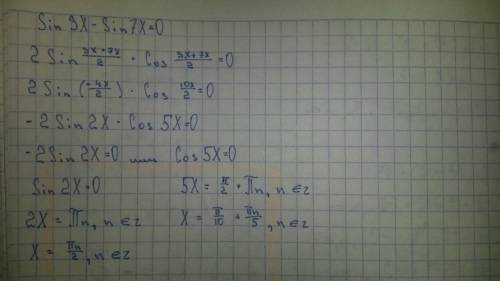 Sin 3x - Sin 7x = 0
2 Sin (3x - 7x)/2 · Cos (3x + 7x)/2 = 0
2 Sin (-4x/2) · Cos 10x/2 = 0
-2 Sin 2x · Cos 5x = 0
-2 Sin 2x = 0 или Cos 5x = 0
Sin 2x = 0 5x = π/2 + πn, n ∈ z
2x = πn, n ∈ z x = π/10 + πn/5, n ∈ z
x = πn/2, n ∈ z